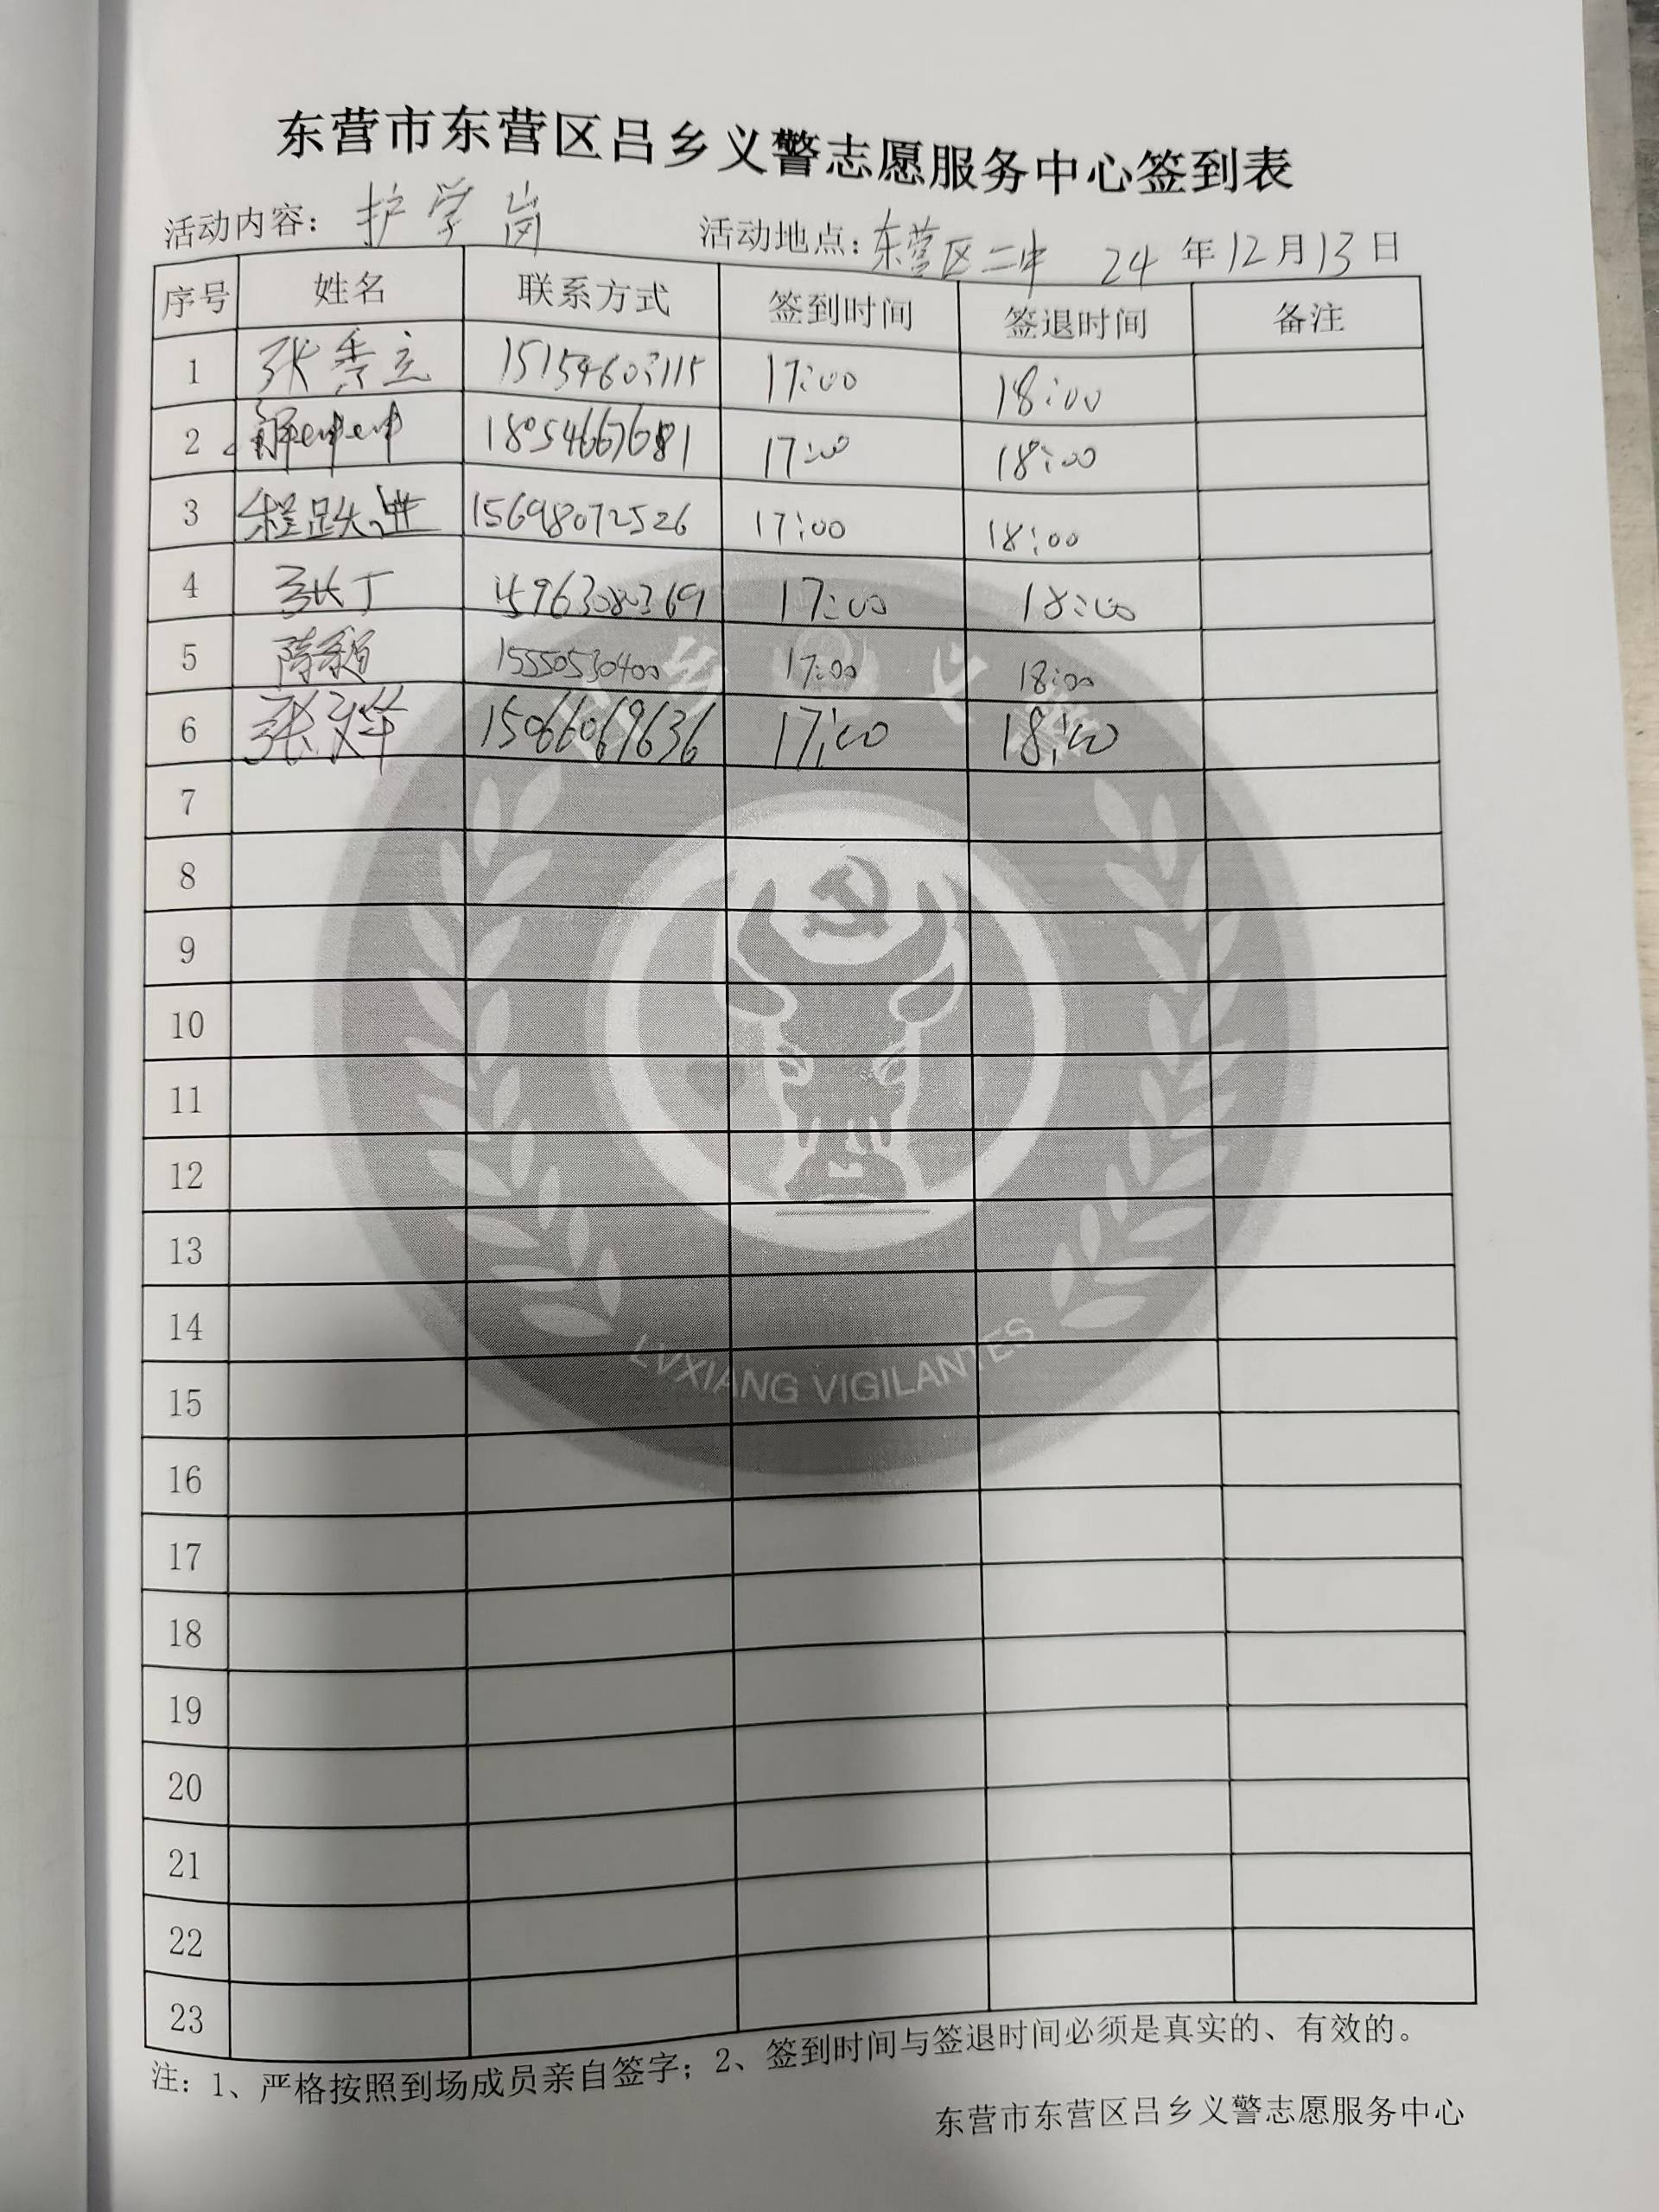 东营市东营区吕乡义警志愿服务中心签到表
活动内容: 护学岗 活动地点: 东营区二中 24 年 12 月 13 日
序号 姓名 联系方式 签到时间 签退时间 备注
1 张秀立 17:00 18:00
2 18054667681 17:00 18:00
3 程跃进 15698072526 17:00 18:00
4 张丁 17:00 18:00
5 15550530400 17:00 18:00
6 张 15066069636 17:00 18:00
7
8
9
10
11
12
13
14
15
16
17
18
19
20
21
22
23
LVXIANG VIGILANTES
注: 1、严格按照到场成员亲自签字; 2、签到时间与签退时间必须是真实的、有效的。
东营市东营区吕乡义警志愿服务中心